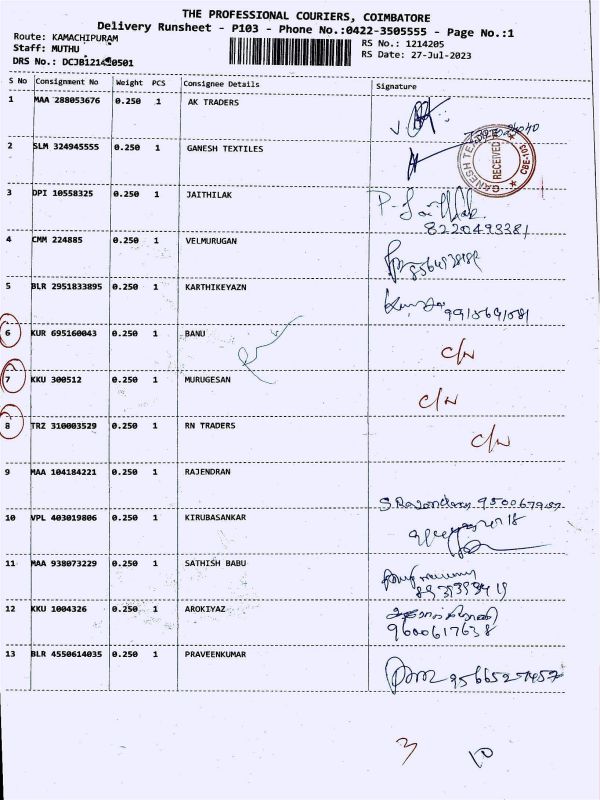 THE PROFESSIONAL COURIERS, COIMBATORE
Delivery Runsheet - P103 - Phone No.:0422-3505555 - Page No.:1
Route: KAMACHIPURAM
RS No.: 1214205
Staff: MUTHU
RS Date: 27-Jul-2023
DRS No.: DCJB121420501
S No Consignment No Weight PCS Consignee Details Signature
1 MAA 288053676 0.250 1 AK TRADERS
2 SLM 324945555 0.250 1 GANESH TEXTILES
RECEIVED
CBE-103
3 DPI 10558325 0.250 1 JAITHILAK
8220493381
4 CMM 224885 0.250 1 VELMURUGAN
5 BLR 2951833895 0.250 1 KARTHIKEYAZN
6 KUR 695160043 0.250 1 BANU C/N
7 KKU 300512 0.250 1 MURUGESAN C/N
8 TRZ 310003529 0.250 1 RN TRADERS C/N
9 MAA 104184221 0.250 1 RAJENDRAN
10 VPL 403019806 0.250 1 KIRUBASANKAR
11 MAA 938073229 0.250 1 SATHISH BABU
12 KKU 1004326 0.250 1 AROKIYAZ
9600617638
13 BLR 4550614035 0.250 1 PRAVEENKUMAR
9566527457
3 10